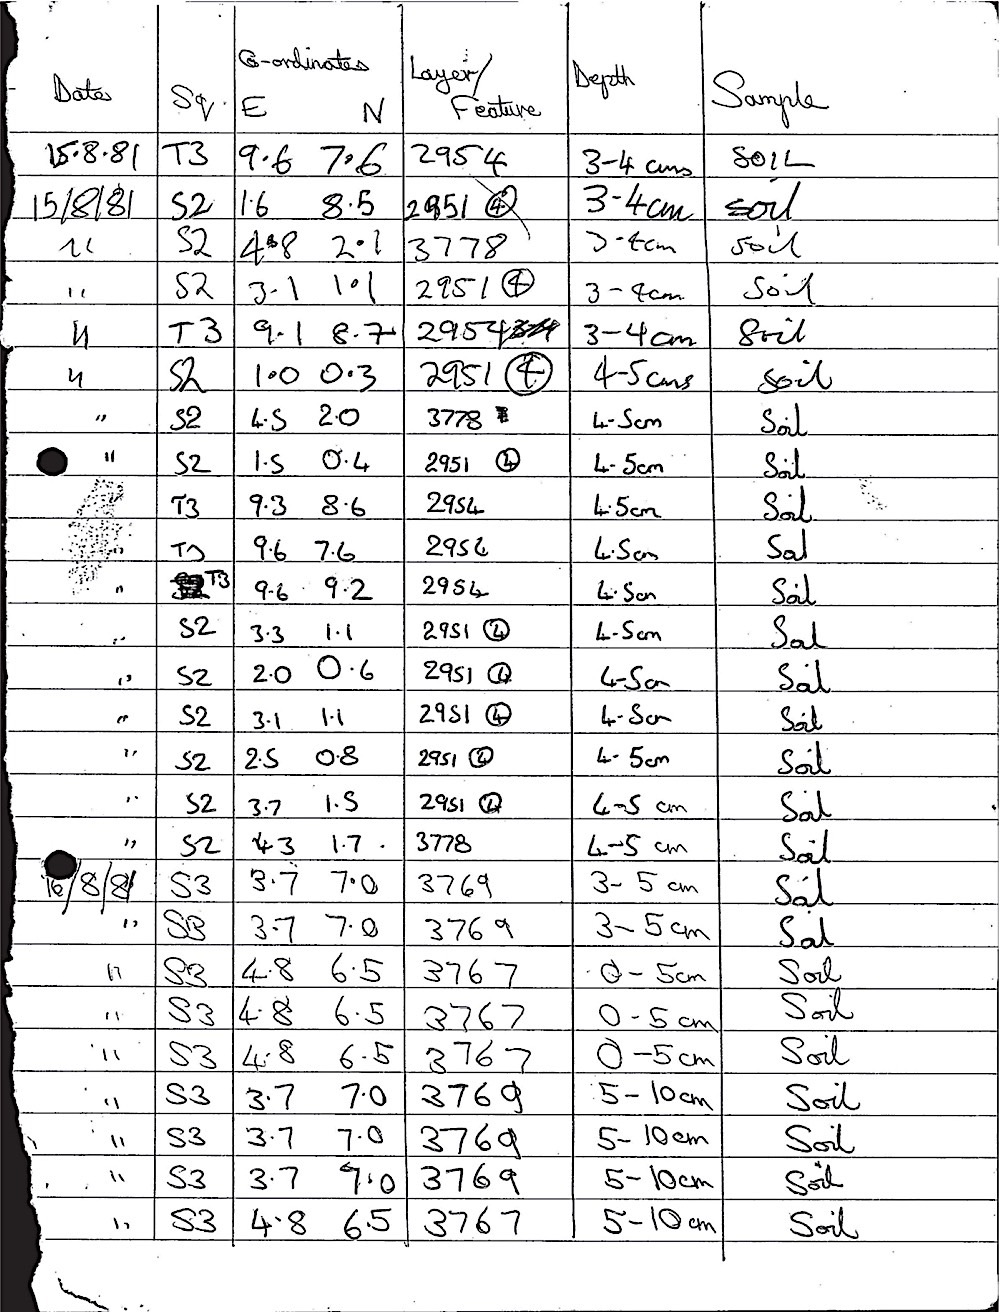 Date Sq. Co-ordinates E N Layer/Feature Depth Sample
15.8.81 T3 9.6 7.6 2954 3-4 cms SOIL
15/8/81 S2 1.6 8.5 2951 ④ 3-4cm soil
" S2 4.8 2.1 3778 3-4cm Soil
" S2 3.1 1.1 2951 ④ 3-4cm Soil
" T3 9.1 8.7 2954 3-4cm Soil
" S2 1.0 0.3 2951 ④ 4-5cms soil
" S2 4.5 2.0 3778 4-5cm Soil
" S2 1.5 0.4 2951 ④ 4-5cm Soil
T3 9.3 8.6 2954 4-5cm Soil
" T3 9.6 7.6 2954 4-5cm Soil
" T3 9.6 9.2 2954 4-5cm Soil
" S2 3.3 1.1 2951 ④ 4-5cm Soil
" S2 2.0 0.6 2951 ④ 4-5cm Soil
" S2 3.1 1.1 2951 ④ 4-5cm Soil
" S2 2.5 0.8 2951 ④ 4-5cm Soil
" S2 3.7 1.5 2951 ④ 4-5 cm Soil
" S2 4.3 1.7 3778 4-5 cm Soil
16/8/81 S3 3.7 7.0 3769 3-5 cm Soil
" S3 3.7 7.0 3769 3-5cm Soil
" S3 4.8 6.5 3767 0-5cm Soil
" S3 4.8 6.5 3767 0-5cm Soil
" S3 4.8 6.5 3767 0-5cm Soil
" S3 3.7 7.0 3769 5-10cm Soil
" S3 3.7 7.0 3769 5-10cm Soil
" S3 3.7 7.0 3769 5-10cm Soil
" S3 4.8 6.5 3767 5-10cm Soil